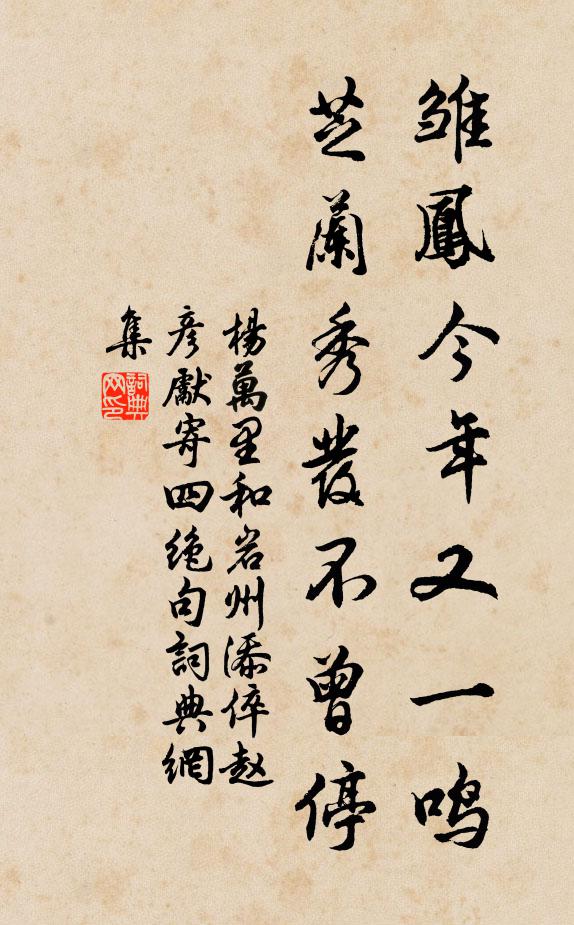 雏鳳今年又一鸣
芝蘭秀發不曾停
楊萬里和岩州添倅赵
彦獻寄四绝句詞典網
集
詞典网印